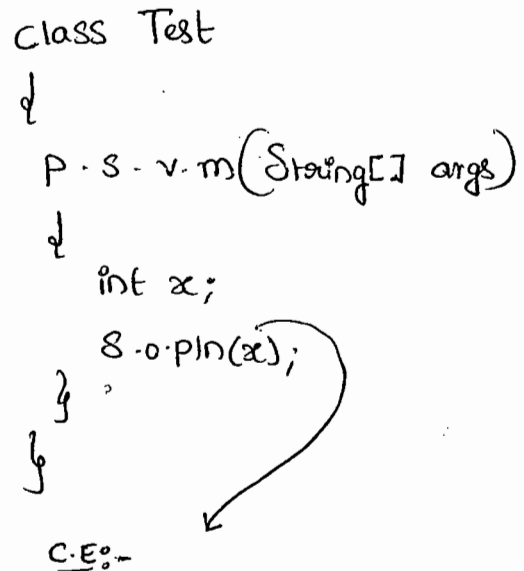 class Test
{
P.S.v.m(String[] args)
{
int x;
S.o.pln(x);
}
}
C.E:-